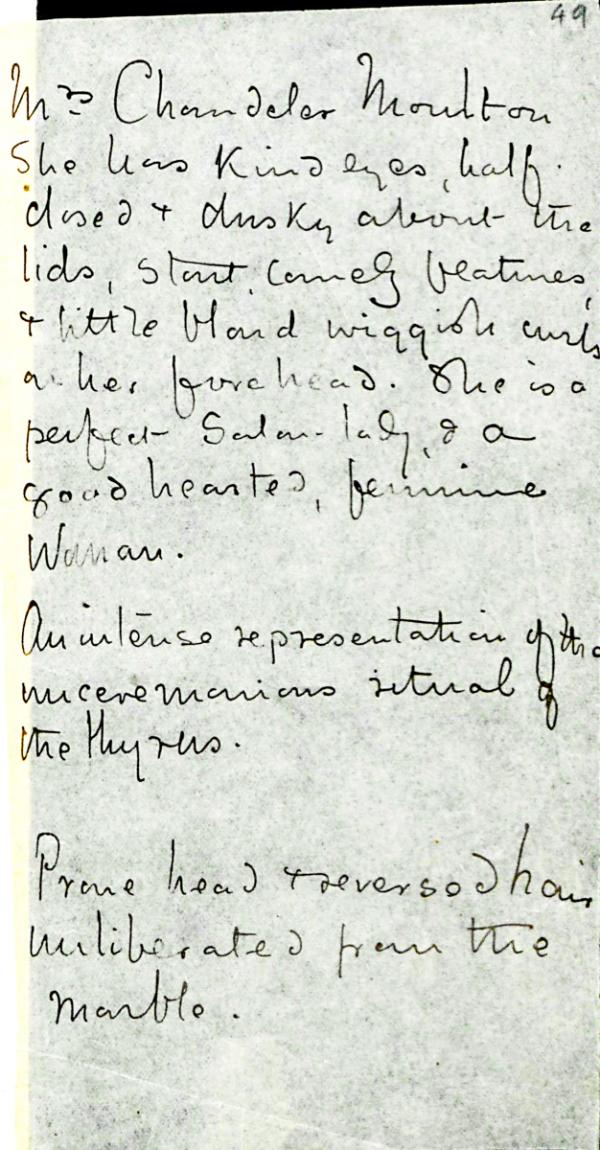 49
Mrs Chandeler Moulton
She has Kind eyes, half-
closed & dusky about the
lids, stout, comely features,
& little bland wiggish curls
on her forehead. She is a
perfect Salon-lady, & a
good hearted, feminine
Woman.
An intense representation of the
unceremonious ritual of
the thyrsus.
Prone head & reversed hair
unliberated from the
marble.